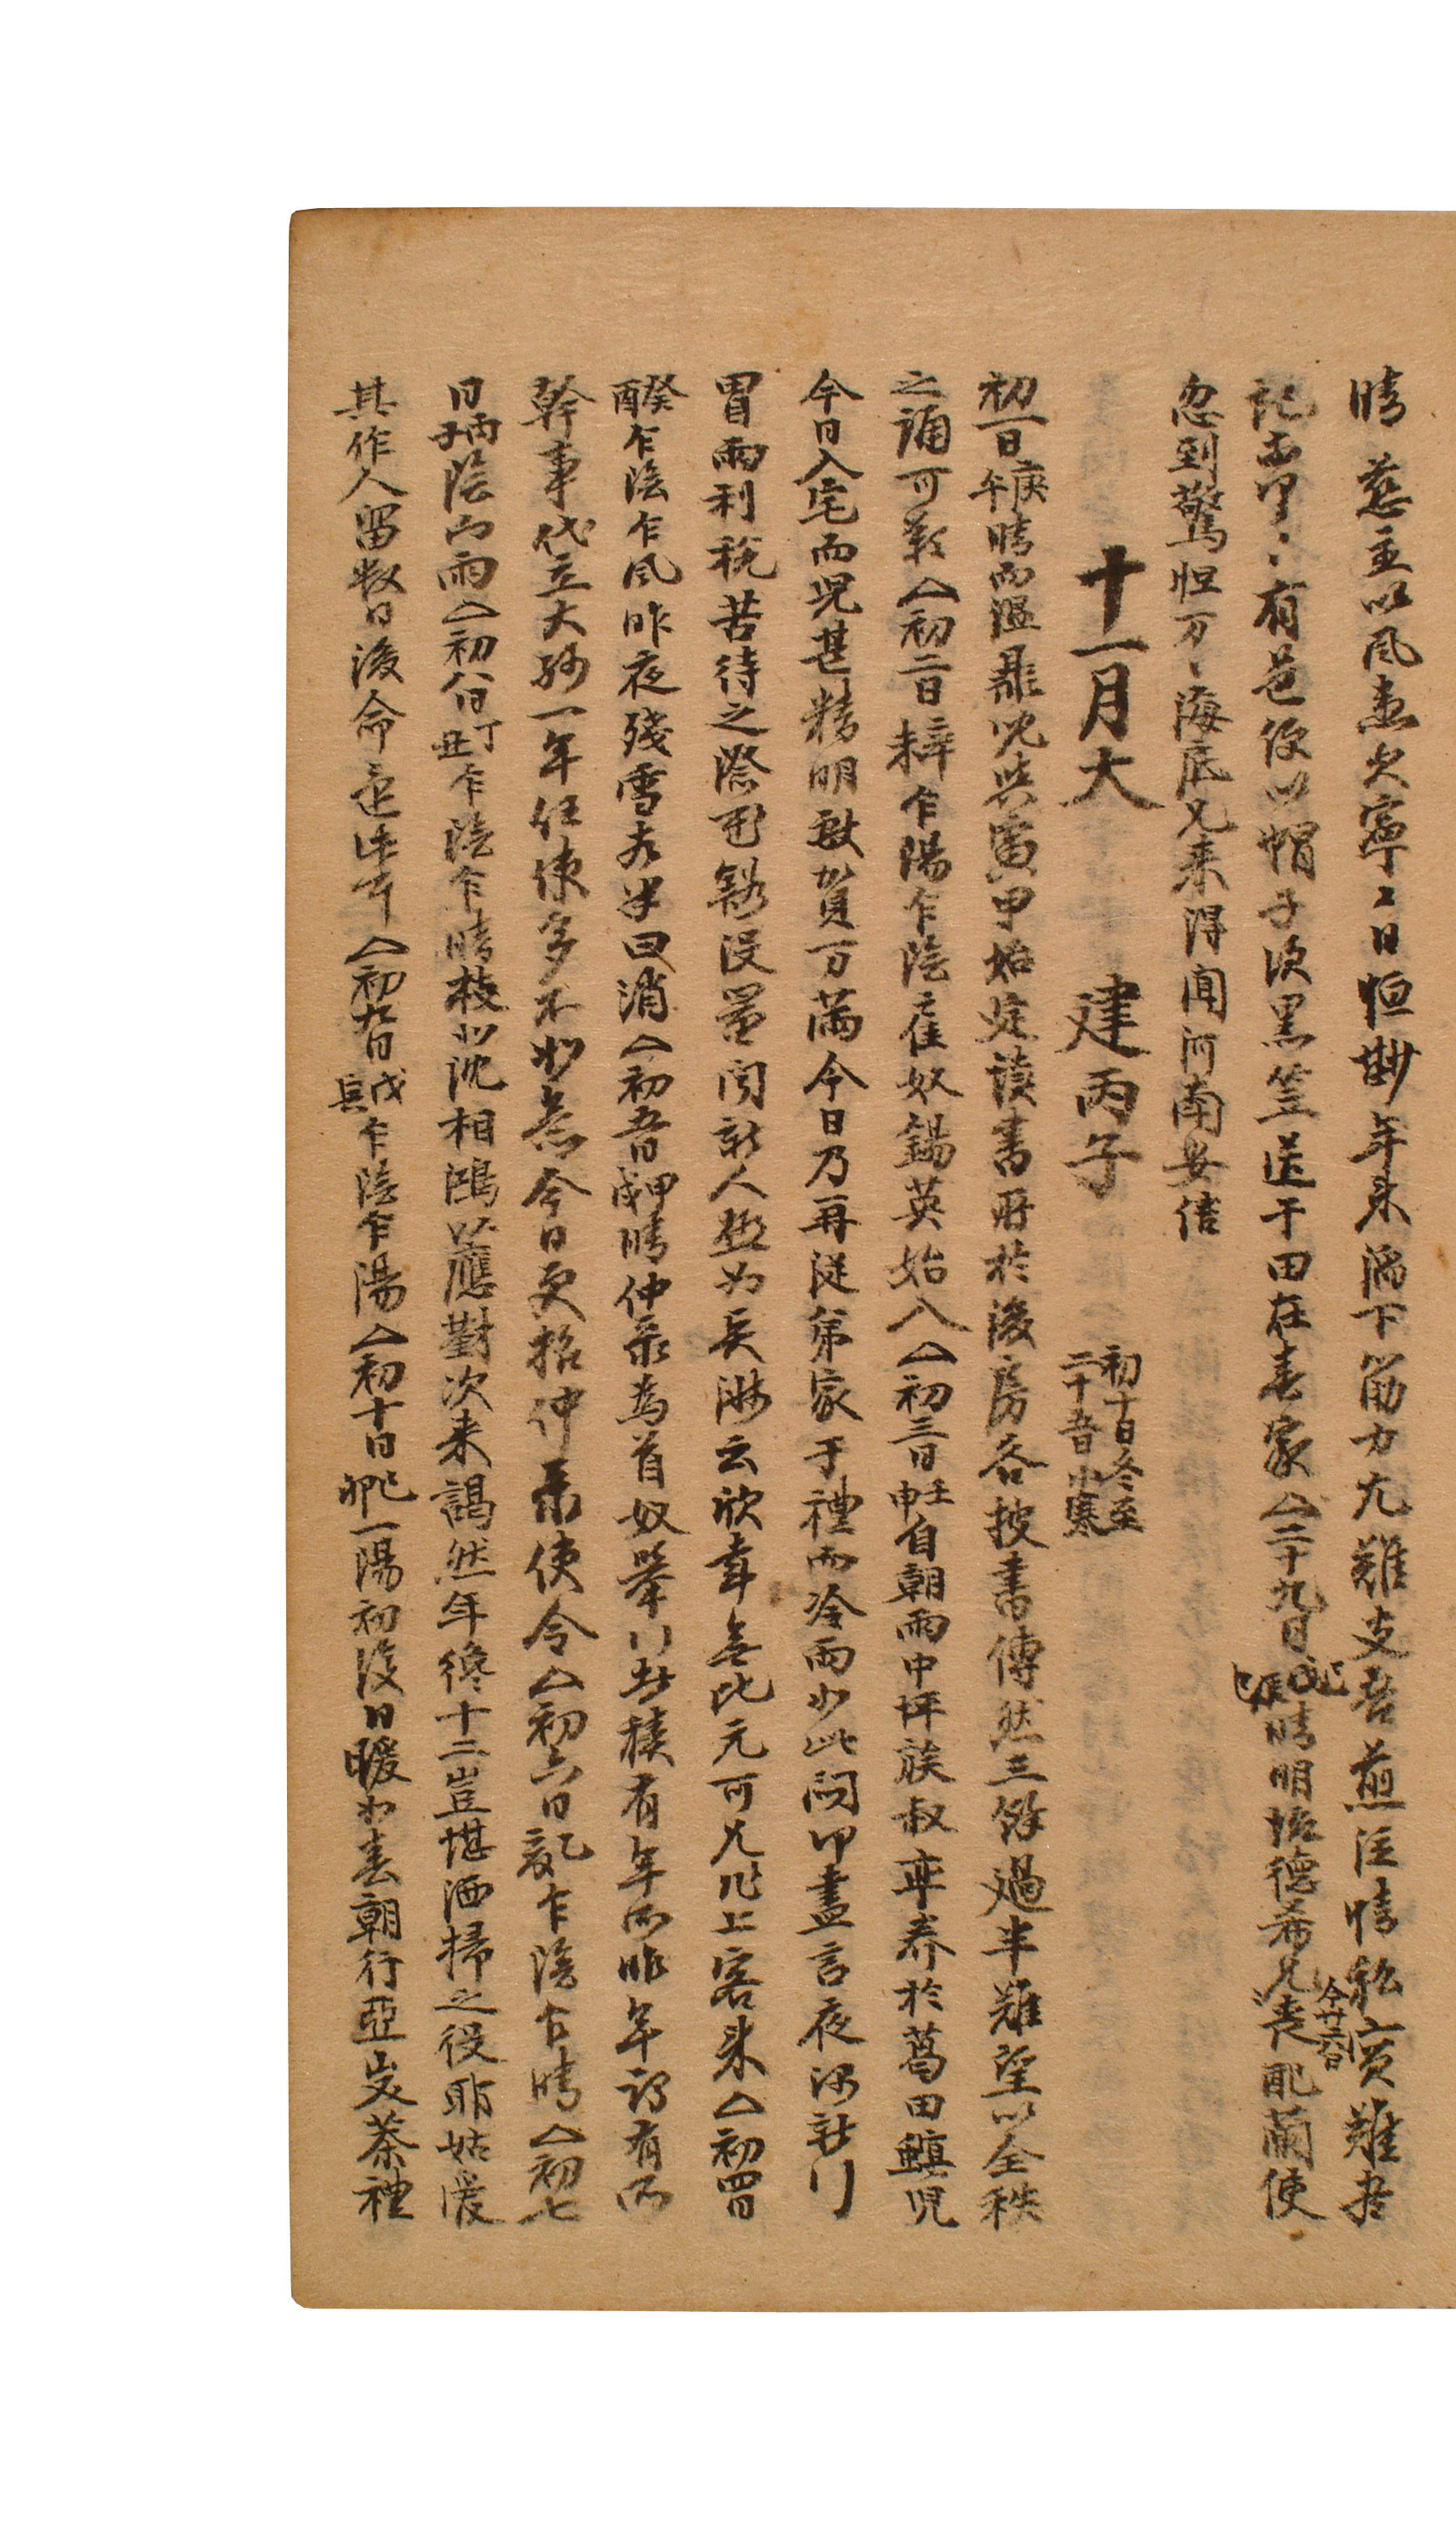 晴 慈主以風恙欠寧〻日恒斟年來澌下筋力尤難支吾煎泣情私實難書
記而罕〻有邑便以帽子漆黑笠送于田在春家△二十九日晴明塔德希兄喪配 今廿六日 蘭使
忽到驚怛万〻海底兄來得聞河南安信
十一月大 建丙子 初十日冬至 二十五日小寒
初一日庚午晴而溫鼎兒與寅甲始定讀書所於後房各披書傳然三餘過半難望以全秩
之誦可歎△初二日辛未乍陽乍陰雇奴錫英始入△初三日壬申自朝雨中坪族叔率春於葛田鎮兒
今日入宅而児甚精明敏賀万萬今日乃再從弟家于禮而冷雨少此悶叩盡言夜深新行
冒雨利稅苦待之際 設 聞新人極為 云欣幸無比元可兄非上客來△初四日
癸酉乍陰乍風昨夜殘雪太半因消△初五日甲戌晴仲彔為首奴輩 積有年而昨年記有所
幹事代立大孫一年任使多不如意今日更招仲彔使令△初六日乙亥乍陰乍晴△初七
日丙子陰而雨△初八日丁丑乍陰乍晴枝 沈相鴻以應對次來謁然年纔十二豈堪洒掃之役耶姑愛
其作人留數日後命 △初九日戊寅乍陰乍陽△初十日己卯一陽初復日暖如春朝行亞歲茶禮